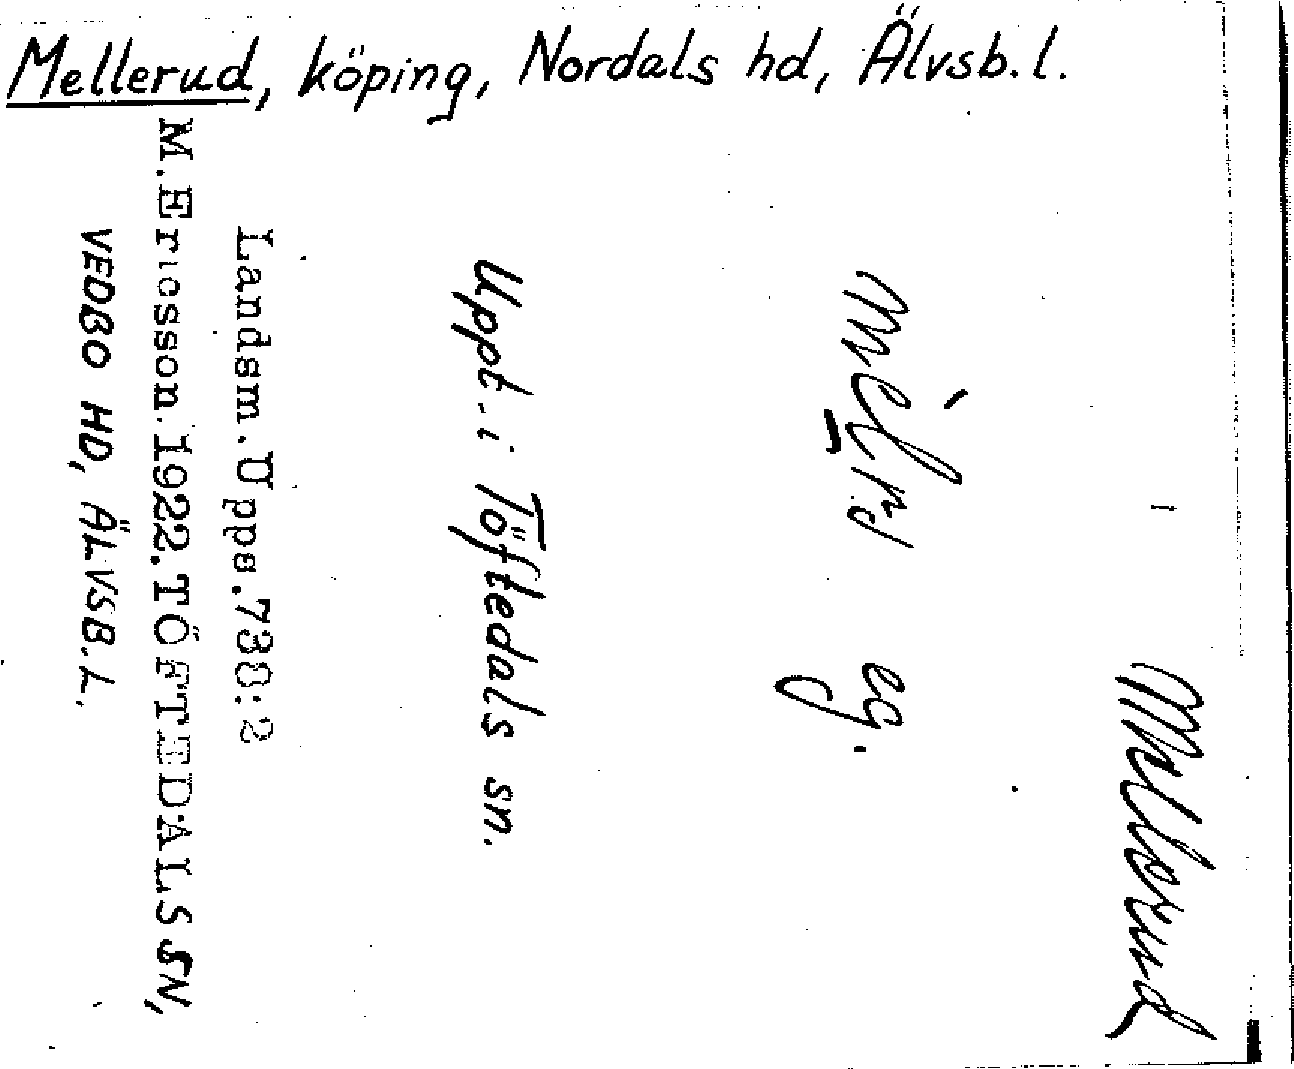 Mellerud, köping, Nordals hd, Älvsb. l.
Mellerud
eg.
Uppt. i Töftedals sn.
Landsm. Upps. 738:2
M. Ericsson. 1922. TÖFTEDALS SN,
VEDBO HD, ÄLVSB. L.